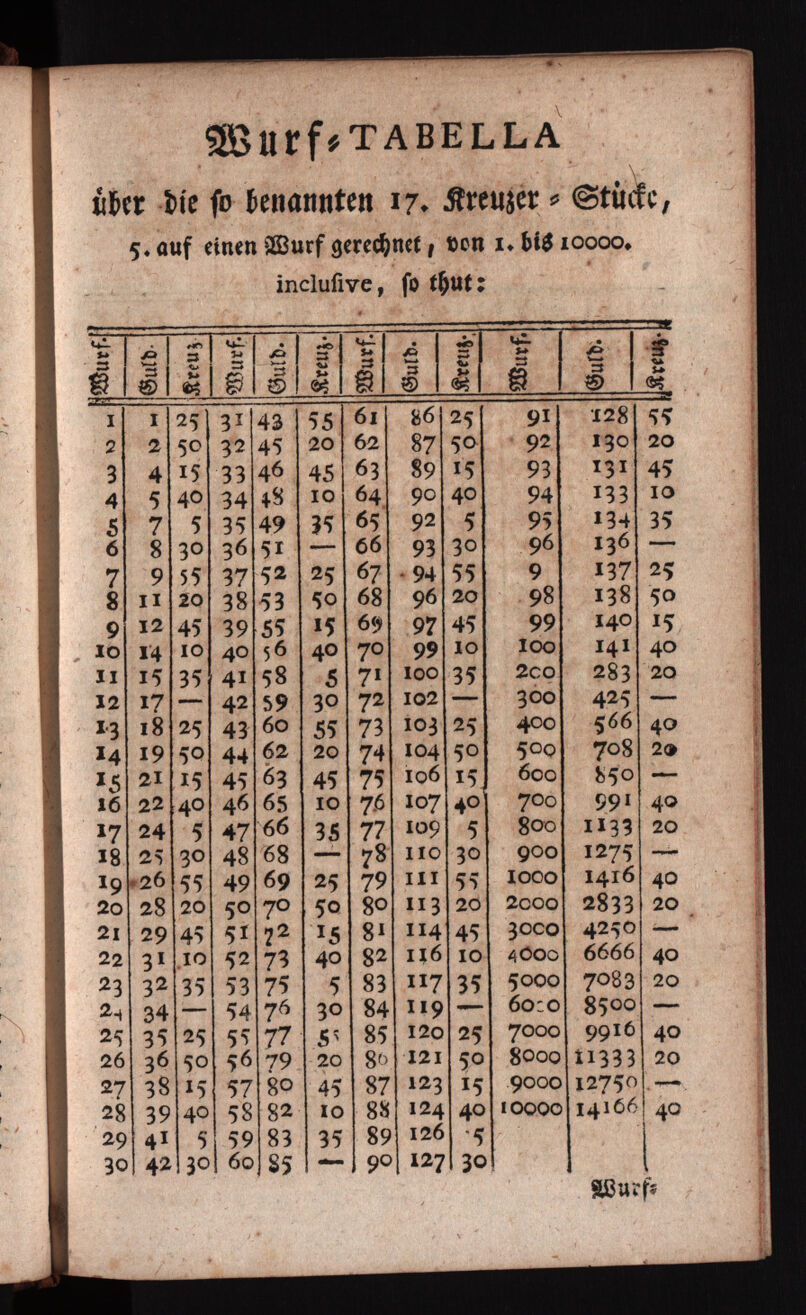 Wurf⸗TABELLA
über die so benannten 17. Kreuzer ⸗ Stücke,
5. auf einen Wurf gerechnet, von 1. bis 10000.
inclusive, so thut:
Wurf. Guld. Kreuz. Wurf. Guld. Kreuz. Wurf. Guld. Kreuz. Wurf. Guld. Kreuz.
1 1 25 31 43 55 61 86 25 91 128 55
2 2 50 32 45 20 62 87 50 92 130 20
3 4 15 33 46 45 63 89 15 93 131 45
4 5 40 34 48 10 64 90 40 94 133 10
5 7 5 35 49 35 65 92 5 95 134 35
6 8 30 36 51 — 66 93 30 96 136 —
7 9 55 37 52 25 67 94 55 9 137 25
8 11 20 38 53 50 68 96 20 98 138 50
9 12 45 39 55 15 69 97 45 99 140 15
10 14 10 40 56 40 70 99 10 100 141 40
11 15 35 41 58 5 71 100 35 200 283 20
12 17 — 42 59 30 72 102 — 300 425 —
13 18 25 43 60 55 73 103 25 400 566 40
14 19 50 44 62 20 74 104 50 500 708 20
15 21 15 45 63 45 75 106 15 600 850 —
16 22 40 46 65 10 76 107 40 700 991 40
17 24 5 47 66 35 77 109 5 800 1133 20
18 25 30 48 68 — 78 110 30 900 1275 —
19 26 55 49 69 25 79 111 55 1000 1416 40
20 28 20 50 70 50 80 113 20 2000 2833 20
21 29 45 51 72 15 81 114 45 3000 4250 —
22 31 10 52 73 40 82 116 10 4000 6666 40
23 32 35 53 75 5 83 117 35 5000 7083 20
24 34 — 54 76 30 84 119 — 6000 8500 —
25 35 25 55 77 55 85 120 25 7000 9916 40
26 36 50 56 79 20 86 121 50 8000 11333 20
27 38 15 57 80 45 87 123 15 9000 12750 —
28 39 40 58 82 10 88 124 40 10000 14166 40
29 41 5 59 83 35 89 126 5
30 42 30 60 85 — 90 127 30
Wurf⸗